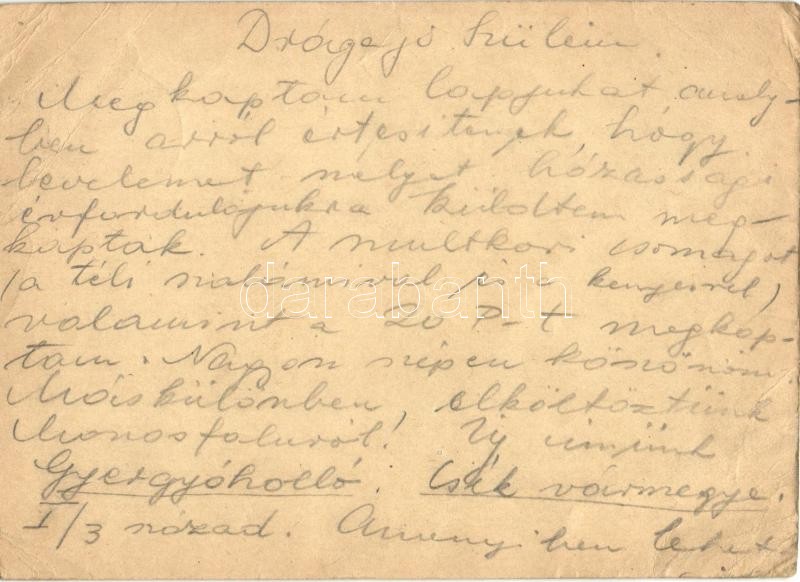 Drága jó Szüleim.
Megkaptam lapjukat amely-
ben arról értesitenek hogy
levelemet melyet házassági
évfordulójukra küldtem meg-
kapták. A multkori csomagot
(a téli szalámival és a kenyérrel)
valamint a 20 P-t megkap-
tam. Nagyon szépen köszönöm.
Máskülönben, elköltöztünk
Monosfaluról! Uj cimünk
Gyergyóholló. Csík vármegye.
I/3 század. Amenyiben lehet
darabanth